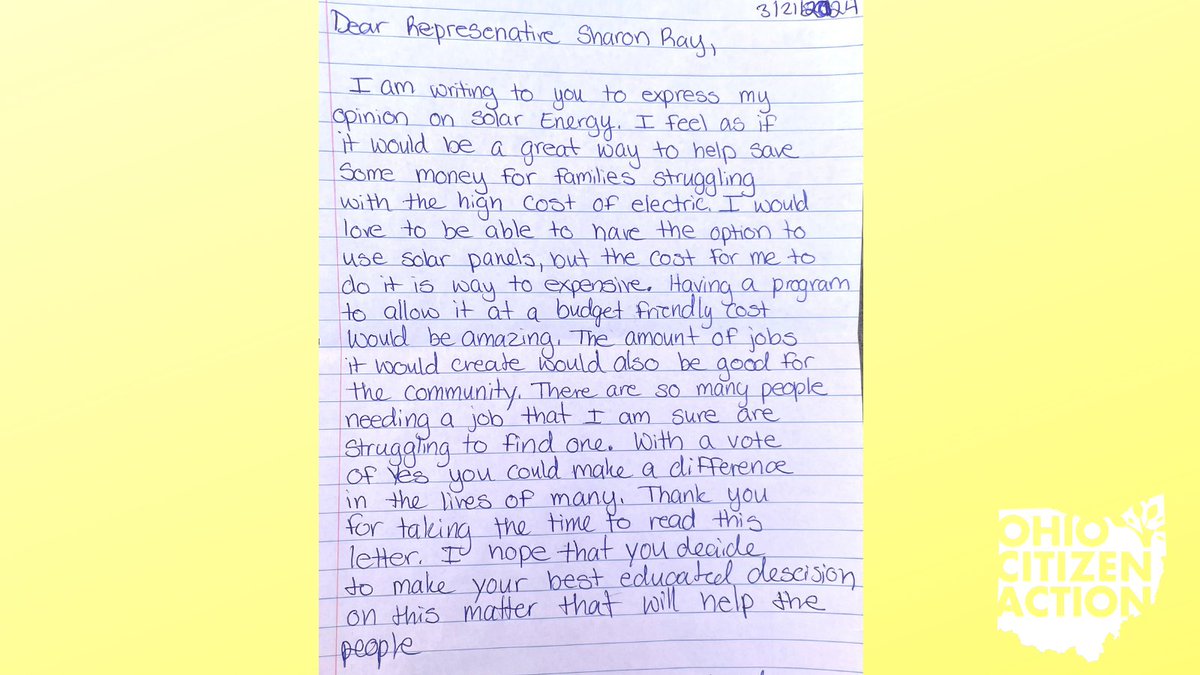 3/21/2024
Dear Represenative Sharon Ray,
I am writing to you to express my
opinion on Solar Energy. I feel as if
it would be a great way to help save
Some money for families struggling
with the high cost of electric. I would
love to be able to have the option to
use solar panels, but the cost for me to
do it is way to expensive. Having a program
to allow it at a budget friendly cost
would be amazing. The amount of jobs
it would create would also be good for
the community. There are so many people
needing a job that I am sure are
Struggling to find one. With a vote
of Yes you could make a difference
in the lives of many. Thank you
for taking the time to read this
letter. I hope that you decide
to make your best educated descision
on this matter that will help the
people
OHIO
CITIZEN
ACTION